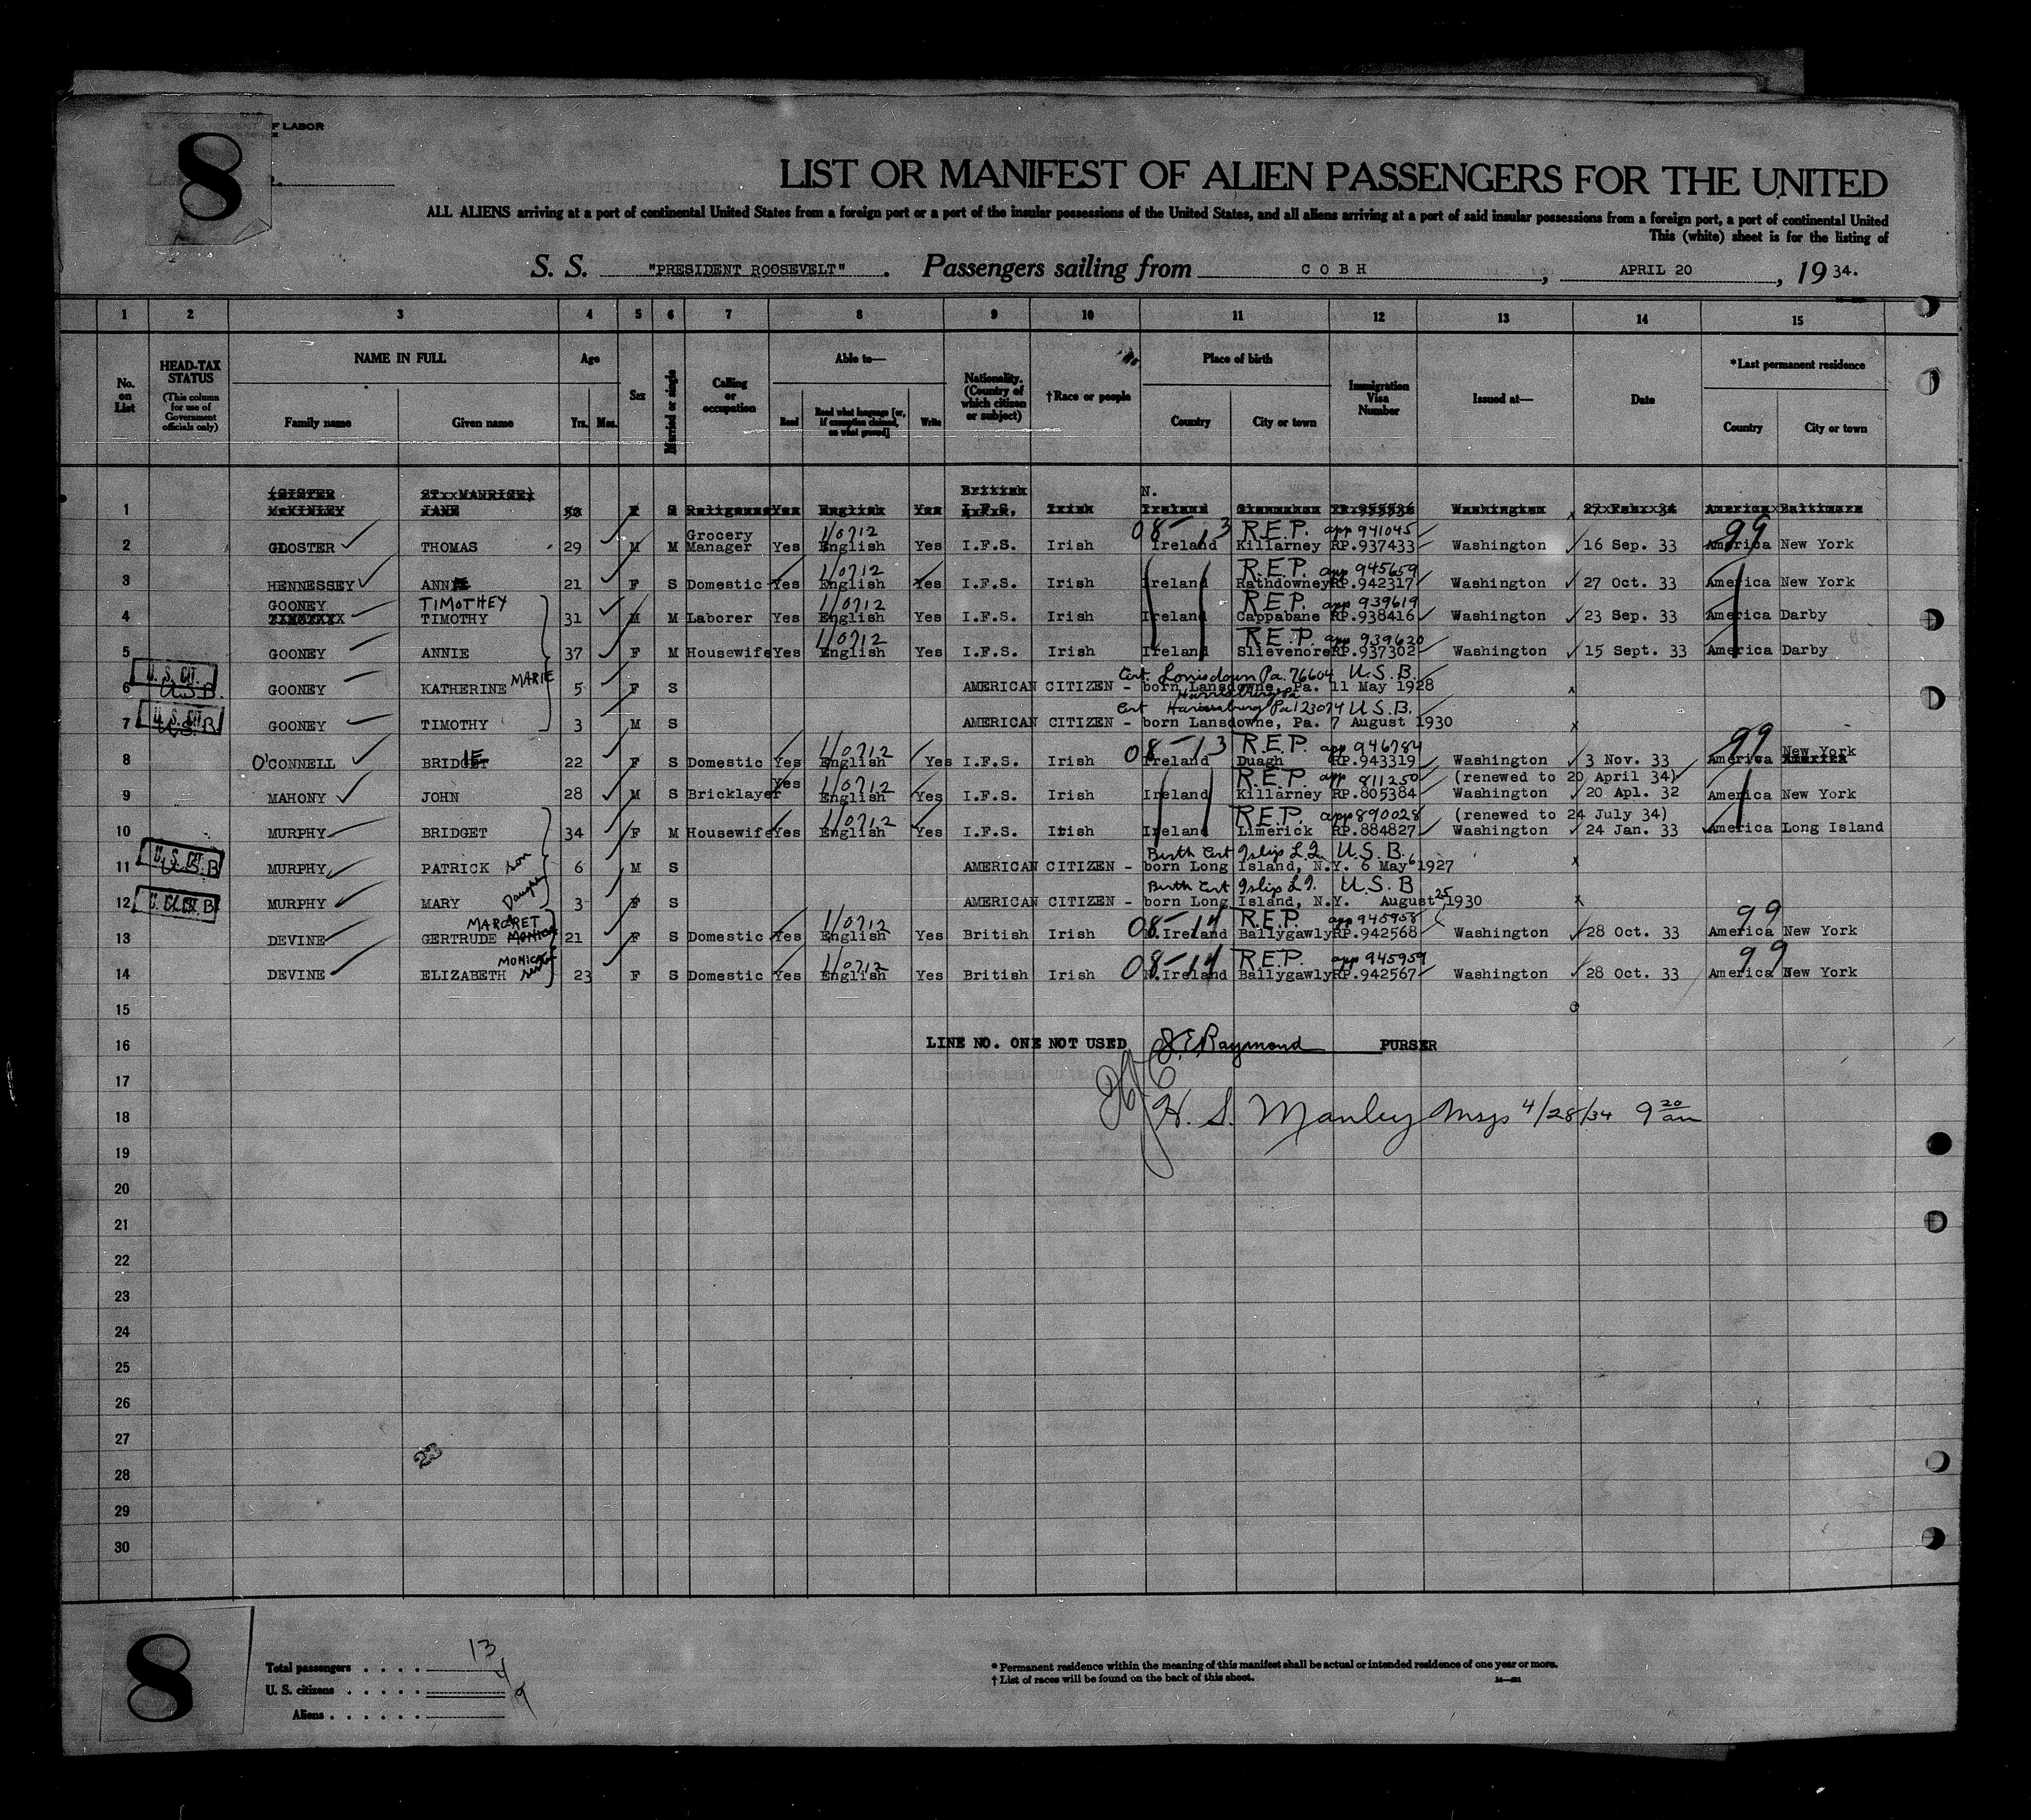 U. S. DEPARTMENT OF LABOR
8
LIST OR MANIFEST OF ALIEN PASSENGERS FOR THE UNITED
ALL ALIENS arriving at a port of continental United States from a foreign port or a port of the insular possessions of the United States, and all aliens arriving at a port of said insular possessions from a foreign port, a port of continental United
This (white) sheet is for the listing of
S. S. "PRESIDENT ROOSEVELT". Passengers sailing from COBH, APRIL 20, 1934.
1 2 3 4 5 6 7 8 9 10 11 12 13 14 15
No. on List
HEAD-TAX STATUS (This column for use of Government officials only)
NAME IN FULL Family name Given name
Age Yrs. Mos.
Sex
Married or single
Calling or occupation
Able to— Read Read what language [or, if exemption claimed, on what ground] Write
Nationality. (Country of which citizen or subject)
†Race or people
Place of birth Country City or town
Immigration Visa Number
Issued at—
Date
*Last permanent residence Country City or town
(SISTER ST. MANRICE) British N.
1 McKINLEY JANE 53 F S Religious Yes English Yes I.F.S. Irish Ireland Washington 27 Feb. 34 America Baltimore
Grocery 1/0712 08-13 R.E.P. app 941045 99
2 GLOSTER THOMAS 29 M M Manager Yes English Yes I.F.S. Irish Ireland Killarney RP.937433 Washington 16 Sep. 33 America New York
1/0712 R.E.P. app 945659
3 HENNESSEY ANN 21 F S Domestic Yes English Yes I.F.S. Irish Ireland Rathdowney RP.942317 Washington 27 Oct. 33 America New York
GOONEY TIMOTHEY 1/0712 R.E.P. app 939619
4 TIMOTHY 31 M M Laborer Yes English Yes I.F.S. Irish Ireland Cappabane RP.938416 Washington 23 Sep. 33 America Darby
1/0712 R.E.P. app 939620
5 GOONEY ANNIE 37 F M Housewife Yes English Yes I.F.S. Irish Ireland Slievenore RP.937302 Washington 15 Sept. 33 America Darby
U. S. CIT. Cert. Pa. 76604 U.S.B.
6 U.S.B. GOONEY KATHERINE MARIE 5 F S AMERICAN CITIZEN - born Lansdowne, Pa. 11 May 1928
Harrisburg Pa
U. S. CIT. Cert Harrisburg Pa 123074 U.S.B.
7 U.S.B GOONEY TIMOTHY 3 M S AMERICAN CITIZEN - born Lansdowne, Pa. 7 August 1930
1/0712 08-13 R.E.P. app 946784 99 New York
8 O'CONNELL BRIDGIE 22 F S Domestic Yes English Yes I.F.S. Irish Ireland Duagh RP.943319 Washington 3 Nov. 33 America
1/0712 R.E.P. app 811250 (renewed to 20 April 34)
9 MAHONY JOHN 28 M S Bricklayer Yes English Yes I.F.S. Irish Ireland Killarney RP.805384 Washington 20 Apl. 32 America New York
1/0712 R.E.P. app 890028 (renewed to 24 July 34)
10 MURPHY BRIDGET 34 F M Housewife Yes English Yes I.F.S. Irish Ireland Limerick RP.884827 Washington 24 Jan. 33 America Long Island
U. S. CIT. Birth Cert Islip L.I. U.S.B.
11 U.S.B MURPHY PATRICK son 6 M S AMERICAN CITIZEN - born Long Island, N.Y. 6 May 6 1927
U. S. CIT. Birth Cert Islip L.I. U.S.B
12 U.S.B MURPHY MARY Daughter 3 F S AMERICAN CITIZEN - born Long Island, N.Y. August 25, 1930
MARGRET 1/0712 08-14 R.E.P. app 945958 99
13 DEVINE GERTRUDE MONICA 21 F S Domestic Yes English Yes British Irish N.Ireland Ballygawly RP.942568 Washington 28 Oct. 33 America New York
MONICA 1/0712 08-14 R.E.P. app 945959 99
14 DEVINE ELIZABETH sister 23 F S Domestic Yes English Yes British Irish N.Ireland Ballygawly RP.942567 Washington 28 Oct. 33 America New York
15
16 LINE NO. ONE NOT USED J. E. Raymond PURSER
17
18 H. S. Manley 4/28/34 9 20 am
19
20
21
22
23
24
25
26
27
23
28
29
30
8
Total passengers . . . . 13
U. S. citizens . . . . . 4
Aliens . . . . . . 9
* Permanent residence within the meaning of this manifest shall be actual or intended residence of one year or more.
† List of races will be found on the back of this sheet.